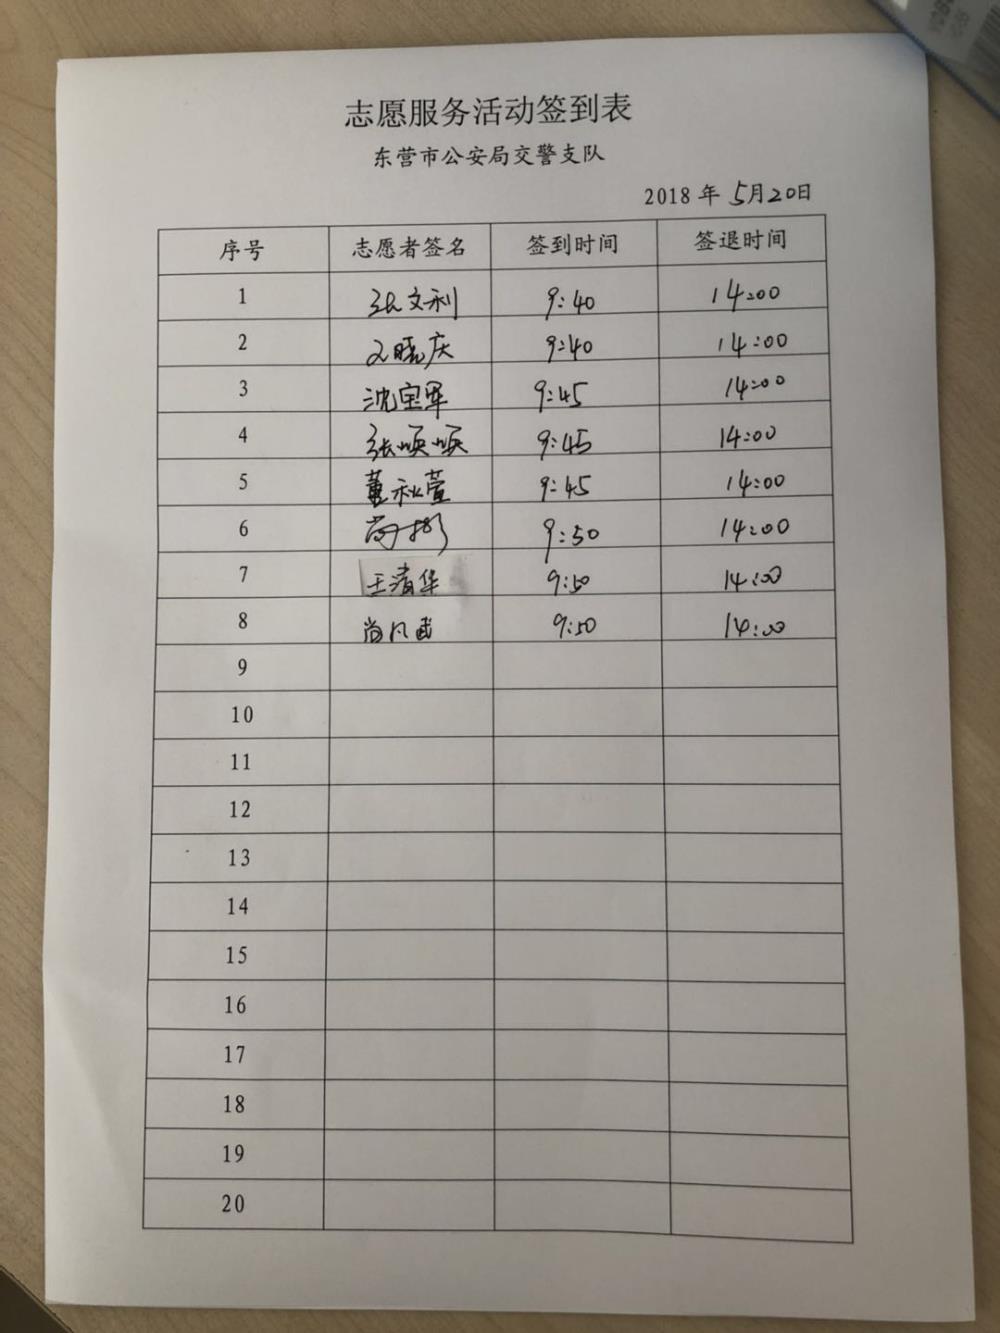 志愿服务活动签到表
东营市公安局交警支队
2018年5月20日
序号 志愿者签名 签到时间 签退时间
1 张文利 9:40 14:00
2 晓庆 9:40 14:00
3 沈宝军 9:45 14:00
4 张顺顺 9:45 14:00
5 董秋萱 9:45 14:00
6 尚 9:50 14:00
7 王清华 9:50 14:00
8 尚凡武 9:50 14:00
9
10
11
12
13
14
15
16
17
18
19
20